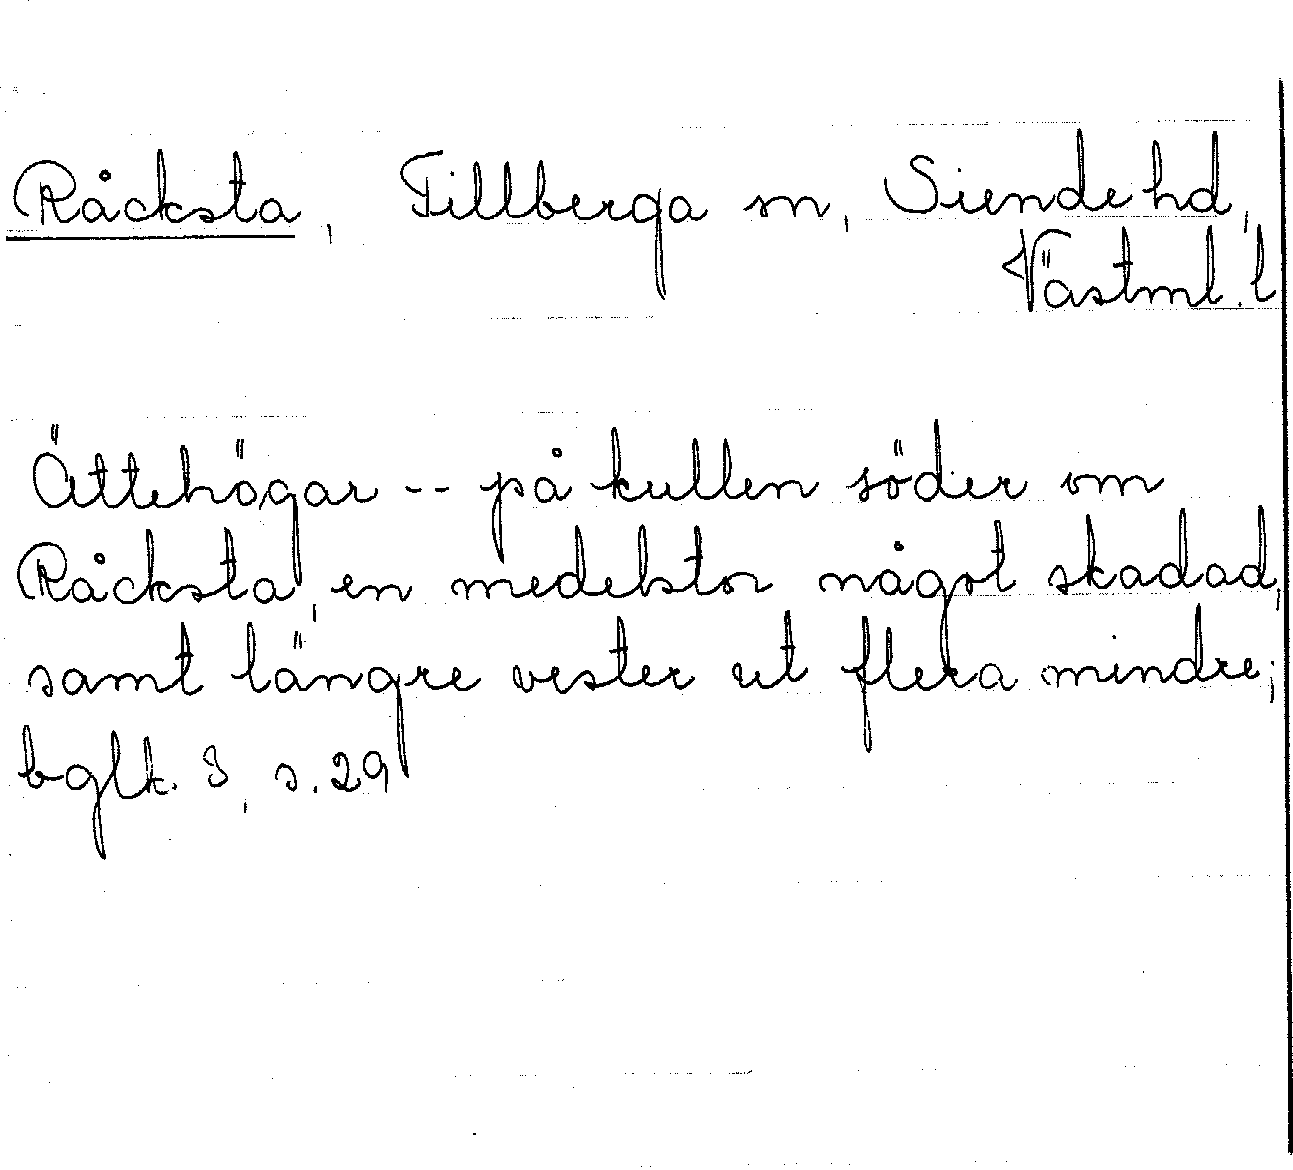 Råcksta, Tillberga sn, Siende hd,
Västml. l
Ättehögar -- på kullen söder om
Råcksta, en medelstor något skadad,
samt längre vester ut flera mindre;
bglk. 3, s. 29